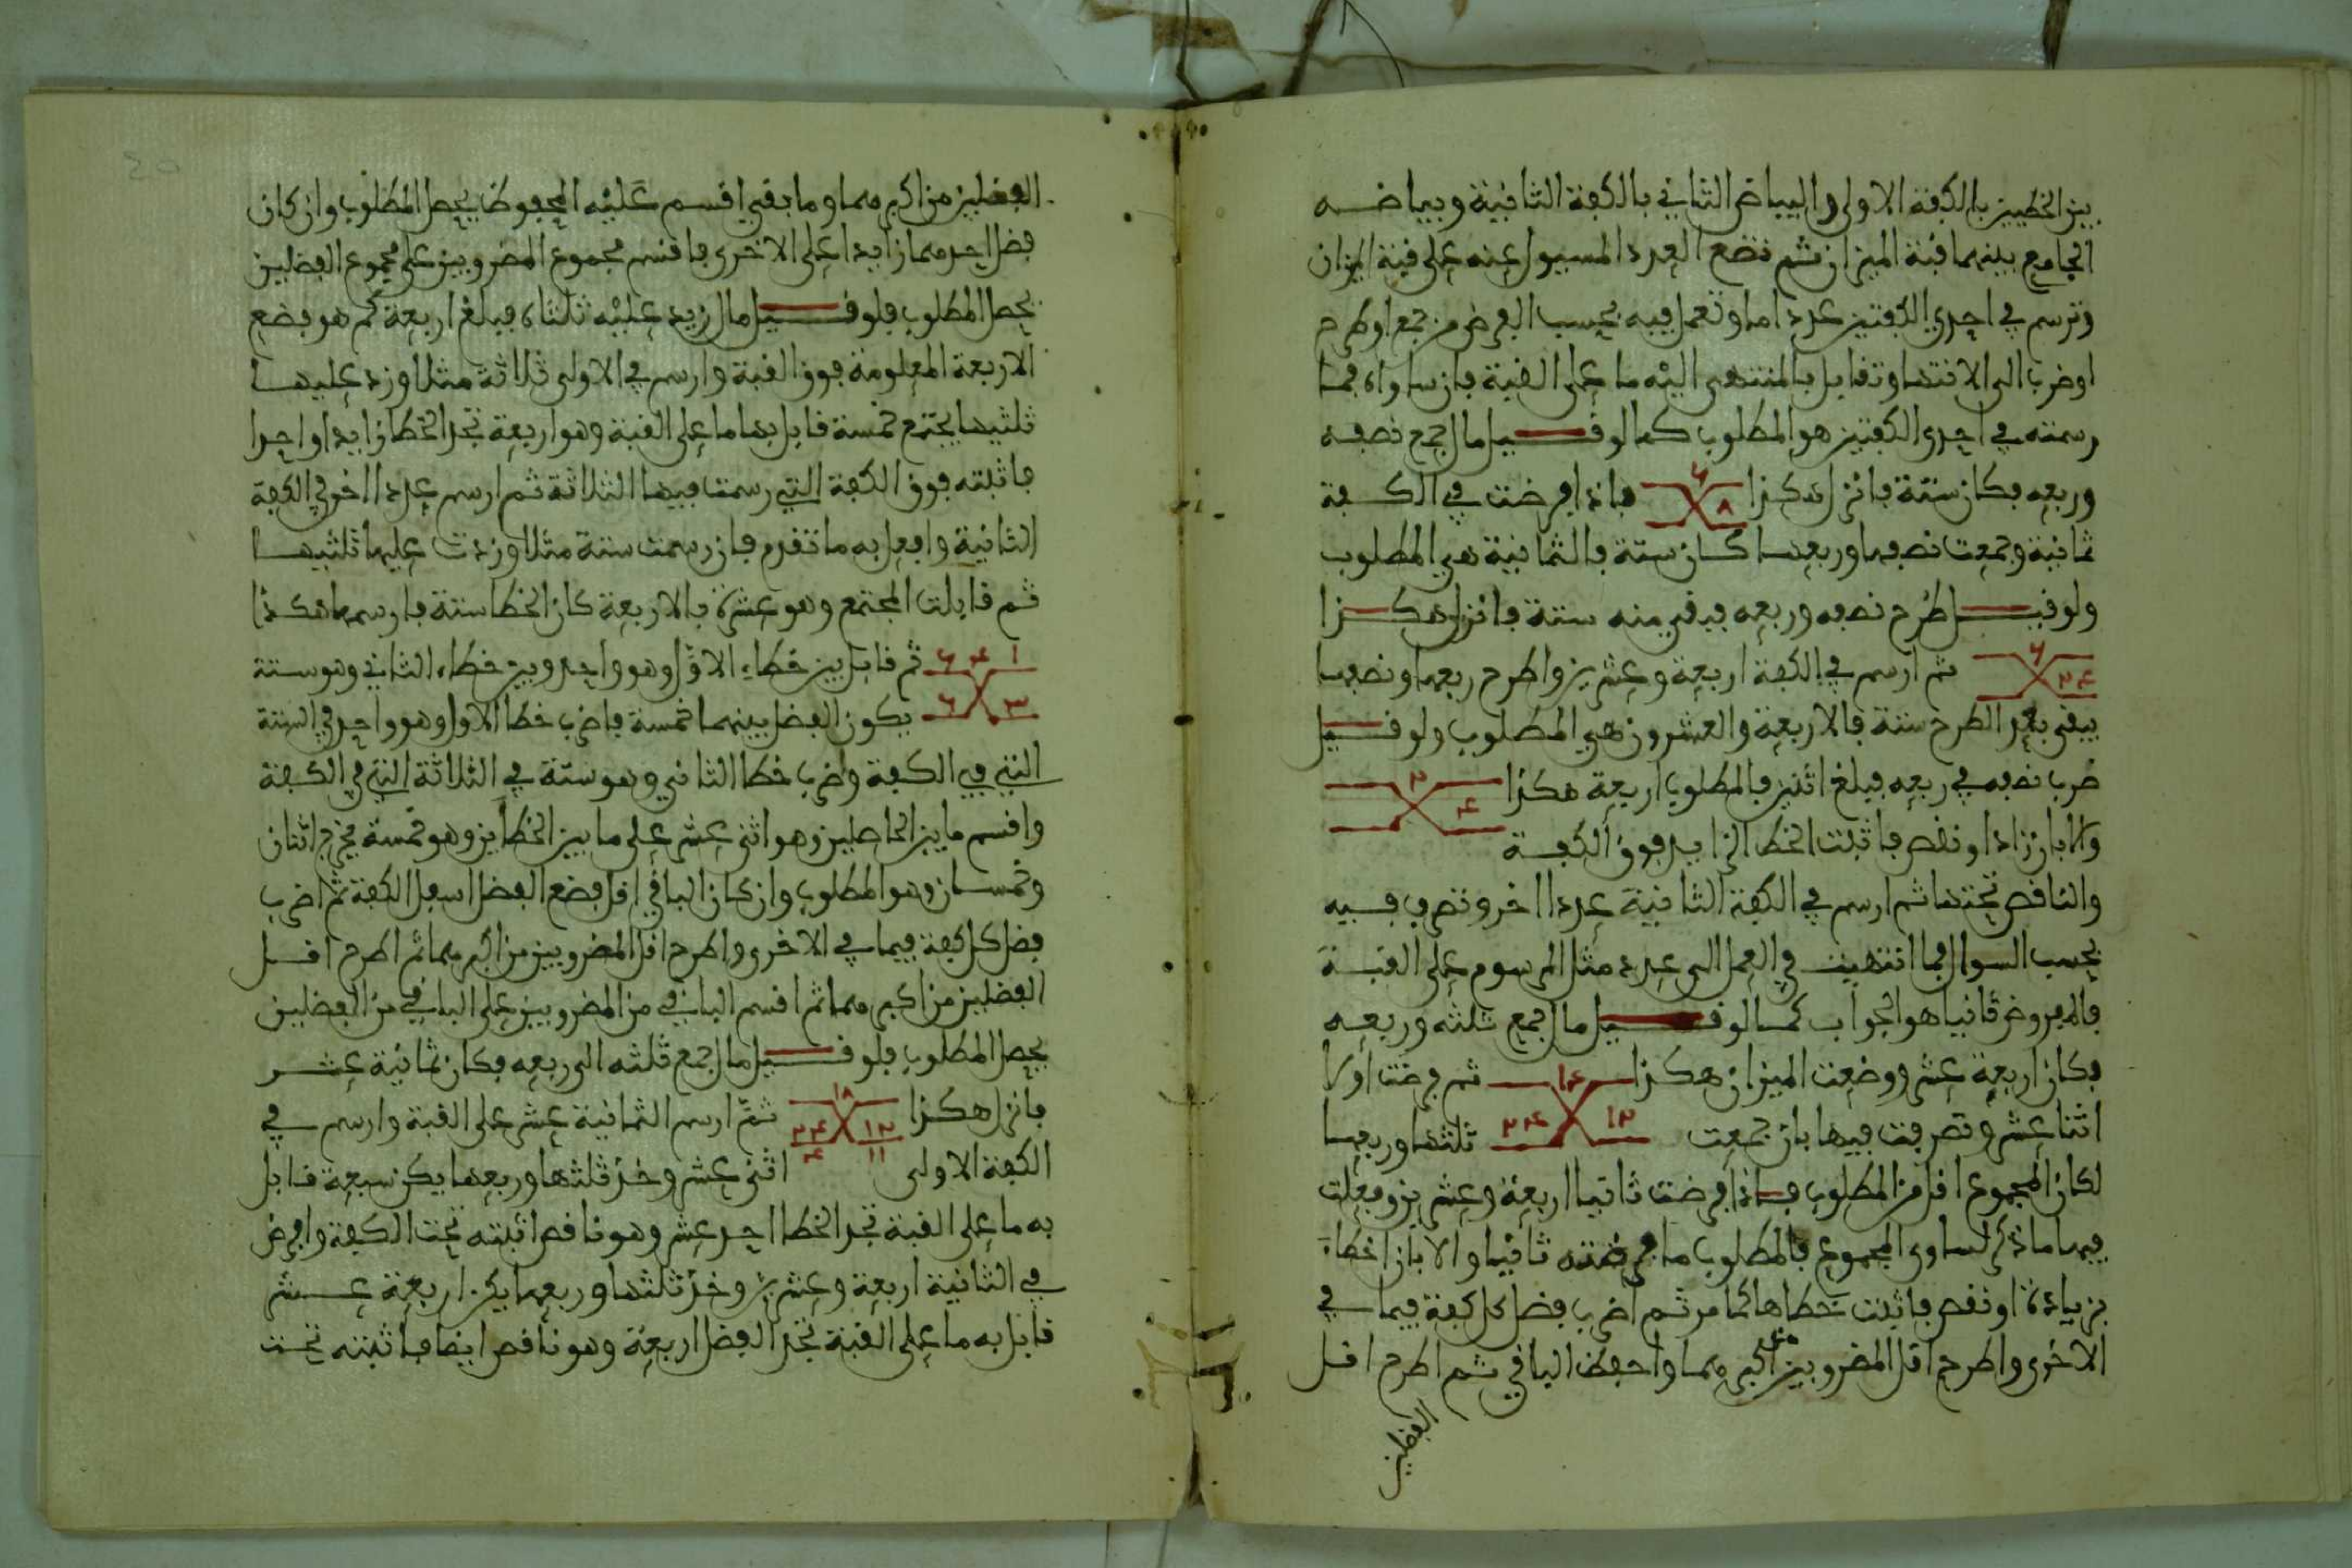 بين الخطيين بالكفة الاولى والبياض الثاني بالكفة الثانية وبياضه
الجامع بينهما قبة الميزان ثم تضع العدد المسيول عنه على قبة الميزان
وترسم في احدى الكفتين عددا ما وتعمل فيه بحسب الفرض من جمع او طرح
او ضرب الى الانتها وتقابل بالمنتهى اليه ما على القبة فان ساواه فما
رسمته في احدى الكفتين هو المطلوب كما لو قيل مال جمع نصفه
وربعه فكان ستة فانزل هكذا ٨ ٦ فاذا فرضت في الكفة
ثمانية وجمعت نصفها وربعها كان ستة فالثمانية هي المطلوب
ولو قيل طرح نصفه وربعه فبقي منه ستة فانزل هكذا
٢۴ ٦ ثم ارسم في الكفة اربعة وعشرين واطرح ربعها ونصفها
يبقى بعد الطرح ستة فالاربعة والعشرون هي المطلوب ولو قيل
ضرب نصفه في ربعه فبلغ اثنين فالمطلوب اربعة هكذا ۴ ٢
والا بان زاد او نقص فاثبت الخطا الزايد فوق الكفة
والناقص تحتها ثم ارسم في الكفة الثانية عددا اخر وتصرف فيه
بحسب السوال فما انتهيت في العمل الى عدد مثل المرسوم على القبة
فالمفروض ثانيا هو الجواب كما لو قيل مال جمع ثلثه وربعه
فكان اربعة عشر ووضعت الميزان هكذا ١۴ ثم فرضت اولا
اثنا عشر وتصرفت فيها بان جمعت ١٢ ٢۴ ثلثها وربعها
لكان المجموع اقل من المطلوب فاذا فرضت ثانيا اربعة وعشرين وفعلت
فيها ما ذكر لساوى المجموع فالمطلوب ما فرضته ثانيا والا بان اخطاء
بزيادة او نقص فاثبت خطاها كما مر ثم اضرب فضل كل كفة فيما في
الاخرى واطرح اقل المضروبين من اكبرهما واحفظ الباقي ثم اطرح اقل
الفضلين
الفضلين من اكبرهما وما بقي اقسم عليه المحفوظ يحصل المطلوب وان كان
فضل احدهما زايدا على الاخرى فاقسم مجموع المضروبين على مجموع الفضلين
يحصل المطلوب فلو قيل مال زيد عليه ثلثاه فبلغ اربعة كم هو فضع
الاربعة المعلومة فوق القبة وارسم في الاولى ثلاثة مثلا وزد عليها
ثلثيها يجتمع خمسة قابل بها ما على القبة وهو اربعة تجد الخطا زايدا واحدا
فاثبته فوق الكفة التي رسمت فيها الثلاثة ثم ارسم عددا اخر في الكفة
الثانية وافعل به ما تقدم فان رسمت ستة مثلا وزدت عليها ثلثيها
ثم قابلت المجتمع وهو عشرة بالاربعة كان الخطا ستة فارسمها هكذا
١ ۴ ٦ ثم قابل بين خطاء الاول وهو واحد وبين خطاء الثاني وهو ستة
٣ ٦ يكون الفضل بينهما خمسة فاضرب خطا الاول وهو واحد في الستة
التي في الكفة واضرب خطا الثاني وهو ستة في الثلاثة التي في الكفة
واقسم ما بين الحاصلين وهو اثنى عشر على ما بين الخطاين وهو خمسة يخرج اثنان
وخمسان وهو المطلوب وان كان الباقي اقل فضع الفضل اسفل الكفة ثم اضرب
فضل كل كفة فيما في الاخرى واطرح اقل المضروبين من اكبرهما ثم اطرح اقل
الفضلين من اكبرهما ثم اقسم الباقي من المضروبين على الباقي من الفضلين
يحصل المطلوب فلو قيل مال جمع ثلثه الى ربعه فكان ثمانية عشر
فانزل هكذا ١٨ ١٢ ٢۴ ثم ارسم الثمانية عشر على القبة وارسم في
الكفة الاولى ١١ ۴ اثنى عشر وخذ ثلثها وربعها يكن سبعة قابل
به ما على القبة تجد الخطا احد عشر وهو ناقص اثبته تحت الكفة وافرض
في الثانية اربعة وعشرين وخذ ثلثها وربعها يكن اربعة عشر
قابل به ما على القبة تجد الفضل اربعة وهو ناقص ايضا فاثبته تحت